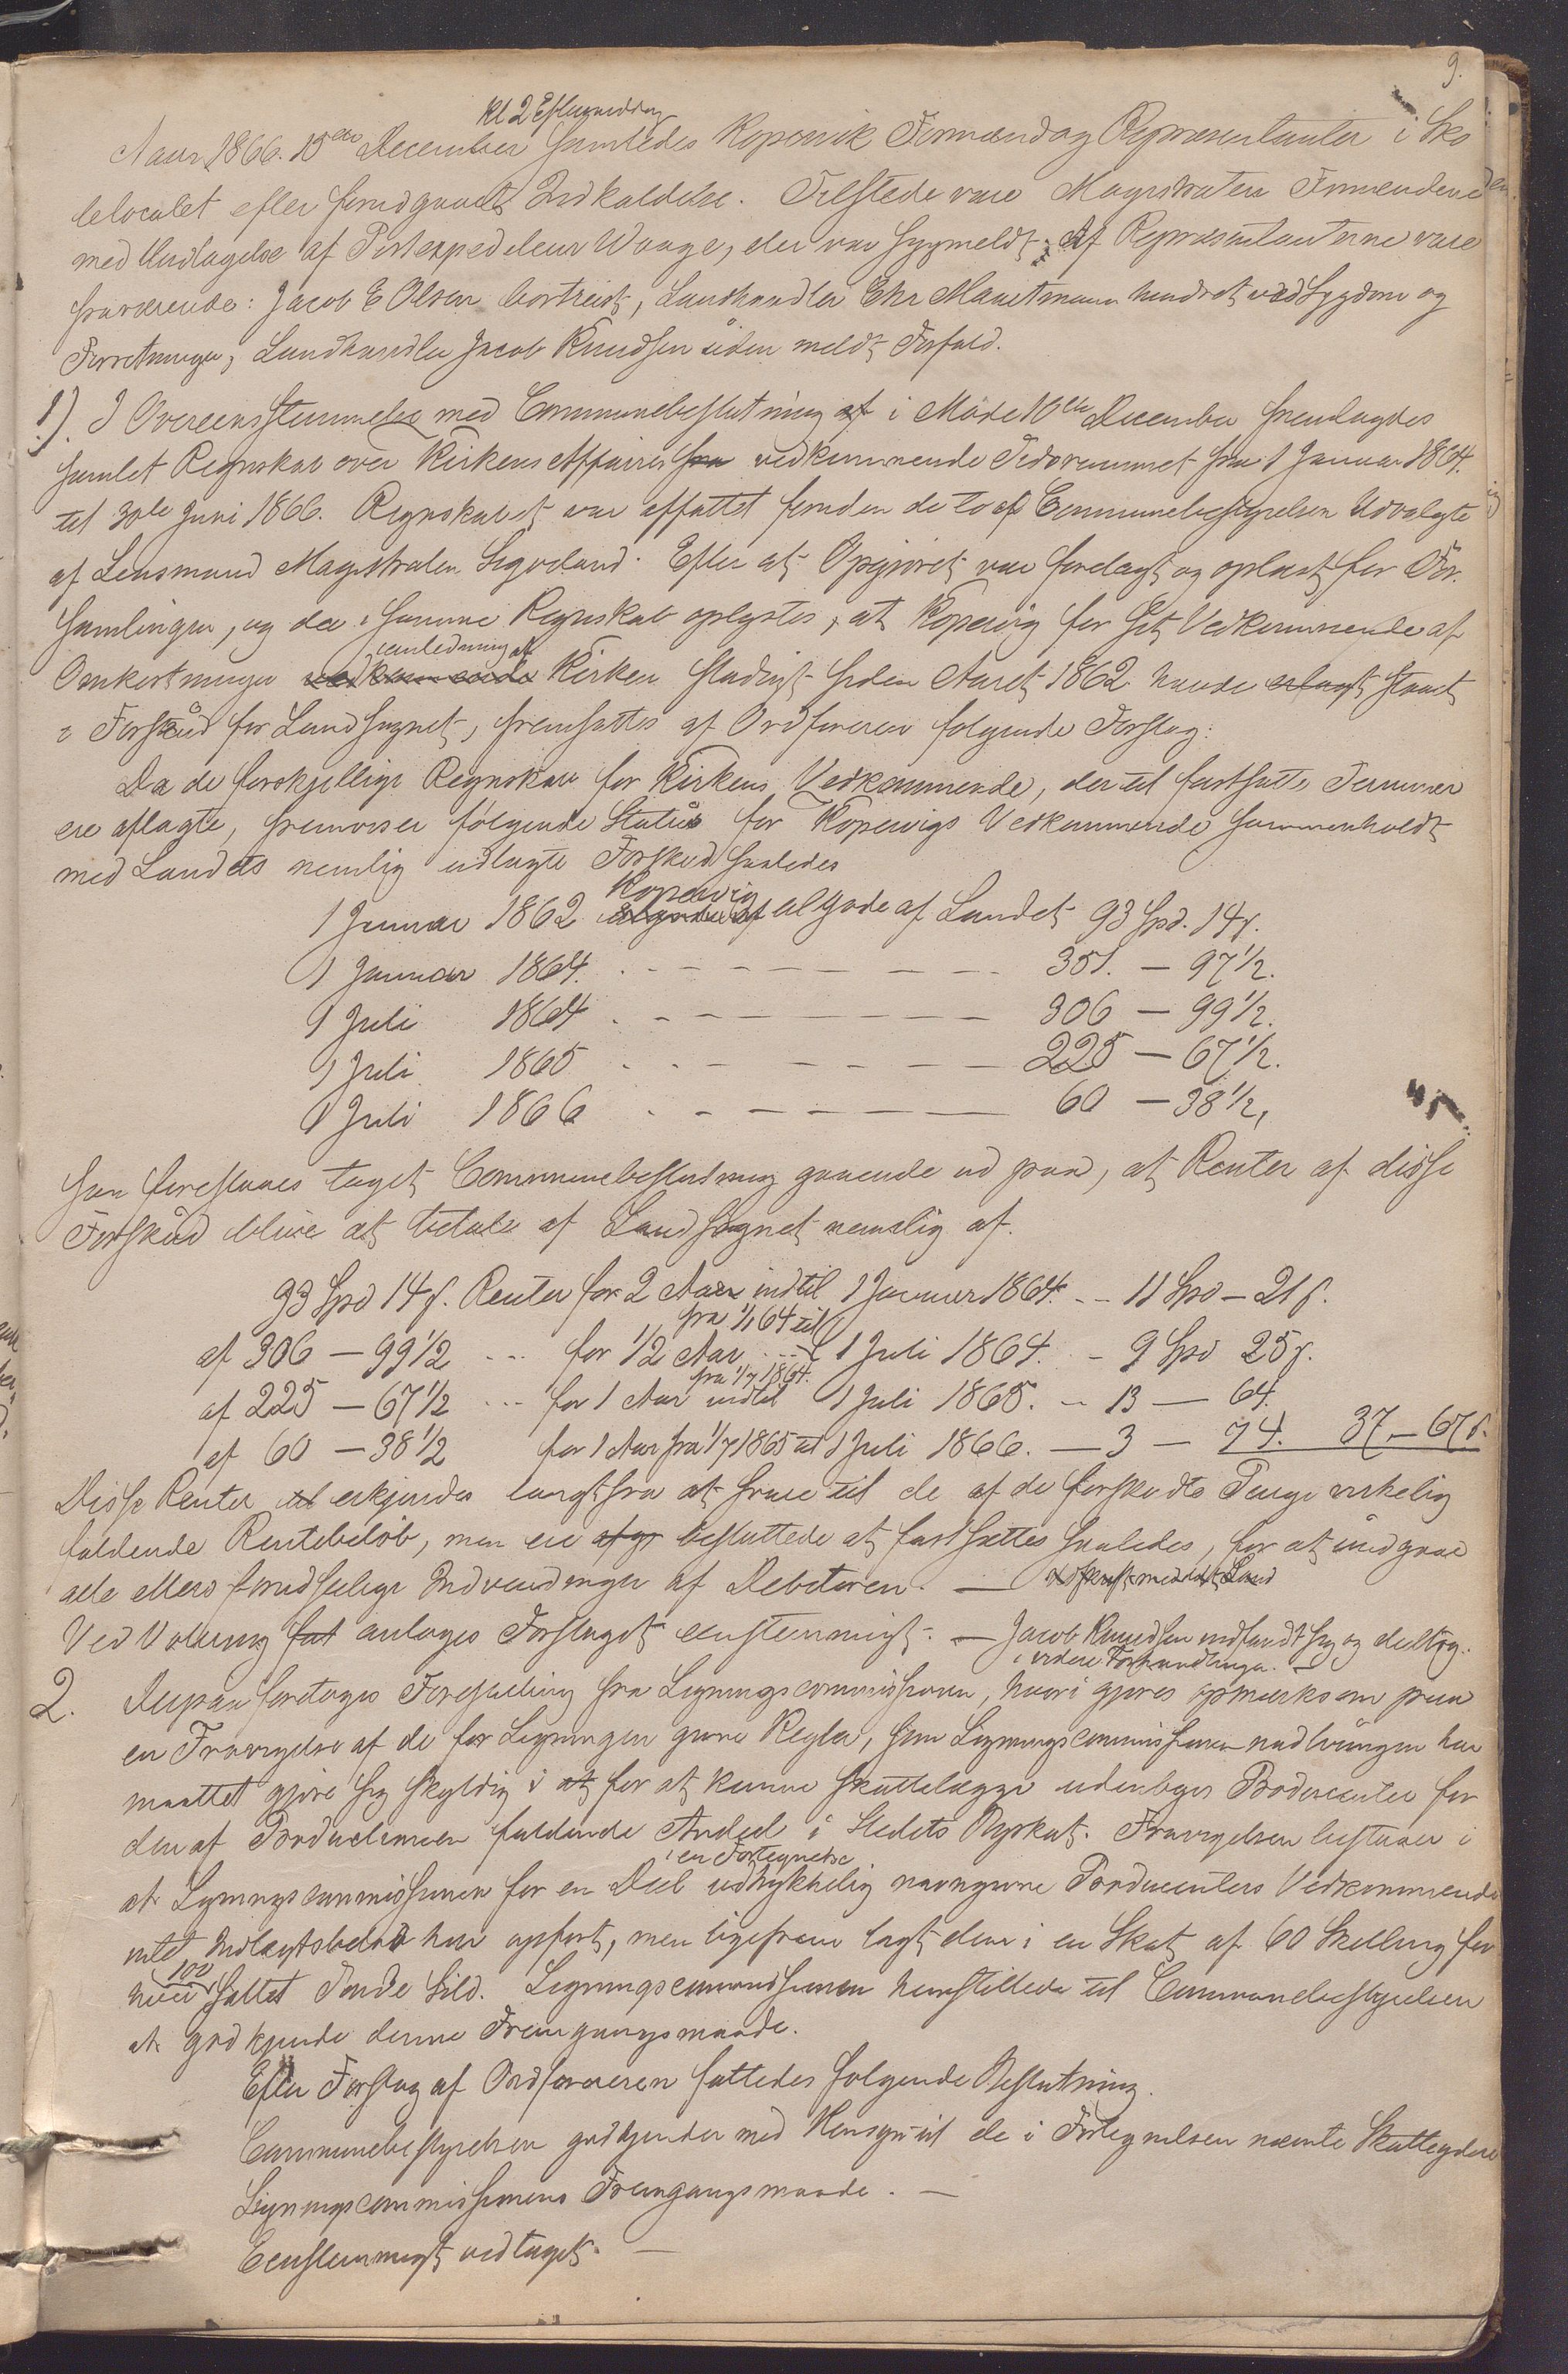 9.
kl 2 Eftermiddag
Aar 1866. 15de December samledes Kopervik Formænd og Repræsentanter i Sko
lelocalet efter forudgaaet Indkaldelse. Tilstede vare Magistraten Formændene
med Undtagelse af Postexpediteur Waage, der var sygmeldt; Af Repræsentanterne vare
fraværende: Jacob E Olsen bortreist, Landhandler Chr Mauritzmann hindret ved Sygdom og
Forretninger, Landhandler Jacob Knudsen uden meldt Forfald.
1). I Overeensstemmelse med Communebeslutning af i Møde 10de December fremlagdes
samlet Regnskab over Kirkens Affairer fra vedkommende Tidsrummet fra 1 Januar 1864.
til 30te Juni 1866. Regnskabet var affattet foruden de to af Communebestyrelsen Udvalgte
af Lensmand Magistraten Sigveland. Efter at Opgjøret var forelagt og oplæst for For-
samlingen, og da i samme Regnskab oplystes, at Kopervig for sit Vedkommende af
i anledning af
Omkostninger vedkommende Kirken stadigt siden Aaret 1862 havde erlagt staaet
i Forskud for Landsognet, fremsattes af Ordføreren følgende Forslag:
Da de forskjellige Regnskab for Kirkens Vedkommende, der til fastsatte Terminer
ere aflagte, fremviser følgende Status for Kopervigs Vedkommende sammenholdt
med Landets nemlig udlagte Forskud saaledes
Kopervig
1 Januar 1862 tilgode af tilgode af Landet 93 Spd. 14 s.
1 Januar 1864. . - - - - - - - 351. — 97 1/2.
1 Juli 1864 . - - - - - - - 306 — 99 1/2.
1 Juli 1865 . - - - - - - - 225 — 67 1/2.
1 Juli 1866 . - - - - - - 60 — 38 1/2,
saa foreslaaes taget Communebeslutning gaaende ud paa, at Renter af disse
Forskud blive at betale af Landsognet nemlig af.
93 Spd 14 s. Renter for 2 Aar indtil 1 Januar 1864. - - 11 Spd — 21 s.
fra 1/1 64 til
af 306 — 99 1/2 ... for 1/2 Aar ... 1 Juli 1864. - 9 Spd 25 s.
fra 1/7 1864.
af 225 — 67 1/2 ... for 1 Aar indtil 1 Juli 1865. - 13 — 64.
af 60 — 38 1/2 for 1 Aar fra 1/7 1865 til 1 Juli 1866. — 3 — 74. 37 — 67 s.
Disse Renter til erkjendes langtfra at svare til de af de forskudte Penge virkelig
faldende Rentebeløb, men ere af gr besluttede at fastsættes saaledes, for at undgaae
alle ellers forudseelige Indvendinger af Debitoren. —
Ved Votering fat antoges Forslaget eenstemmigt. — Jacob Knudsen indfandt sig og deeltog.
i videre Forhandlinger. —
2. Derpaa foretoges Forestilling fra Ligningscommissionen, hvori gjøres opmærksom paa
en Fravigelse af de for Ligningen givne Regler, som Ligningscommissionen nødtvungen har
maattet gjøre sig skyldig i at for at kunne skattelægge udenbyes Producenter for
den af Productionen faldende Andeel i Stedets Byskat. Fravigelsen bestaaer i
i en Fortegnelse
at Ligningscommissionen for en Deel udtrykkelig navngivne Producenters Vedkommende
intet Indtægtsbeløb har opført, men ligefrem lagt dem i en Skat af 60 Skilling for
100
hver saltet Tønde Sild. Ligningscommissionen henstillede til Communebestyrelsen
at godkjende denne Fremgangsmaade.
Efter Forslag af Ordføreren fattedes følgende Beslutning.
Communebestyrelsen godkjender med Hensyn til de i Fortegnelsen nævnte Skatteydere
Ligningscommissionens Fremgangsmaade. —
Eenstemmigt vedtaget. —